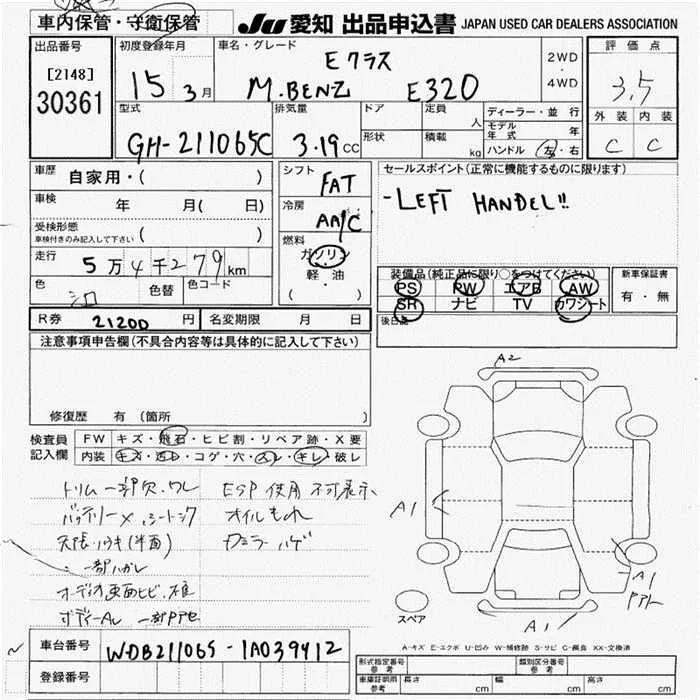 車内保管・守衛保管
JU 愛知 出品申込書 JAPAN USED CAR DEALERS ASSOCIATION
出品番号
[2148]
30361
初度登録年月
15年 3月
車名・グレード
Eクラス
M.BENZ E320
2WD
・
4WD
評価点
3.5
外装 内装
C C
型式
GH-211065C
排気量
3.19cc
ドア
形状
定員 人
積載 kg
ディーラー・並行
モデル年式 年
ハンドル 左・右
車歴
自家用・( )
車検
年 月( 日)
受検形態
車検付きのみ記入して下さい ( )
走行
5万4千279km
色
シロ
色替
色コード
シフト
FAT
冷房
AA/C
燃料
ガソリン
軽・油
( ・ )
セールスポイント(正常に機能するものに限ります)
-LEFT HANDEL!!
装備品(純正品に限り○をつけてください)
PS PW エアB AW
SR ナビ TV カワシート
新車保証書
有・無
後日品
R券 21200円
名変期限 月 日
注意事項申告欄(不具合内容等は具体的に記入して下さい)
修復歴 有(箇所 )
検査員記入欄
FW キズ・飛石・ヒビ割・リペア跡・X要
内装 キズ・汚レ・コゲ・穴・スレ・キレ・破レ
トリム一部欠.ワレ
バッテリー×
天張
一部ハガレ
オーディオ画面ヒビ
ボディーAU 一部
ESP 使用 不可表示
オイルもれ
カミラー ハゲ
A2
A1
A1
A1
スペア
A-キズ E-エクボ U-凹み W-補修跡 S-サビ C-腐食 XX-交換済
車台番号
WDB211065-1A039412
登録番号
形式指定番号
参考
類別区分番号
参考
車庫証明用
参考
長さ cm
幅 cm
高さ cm